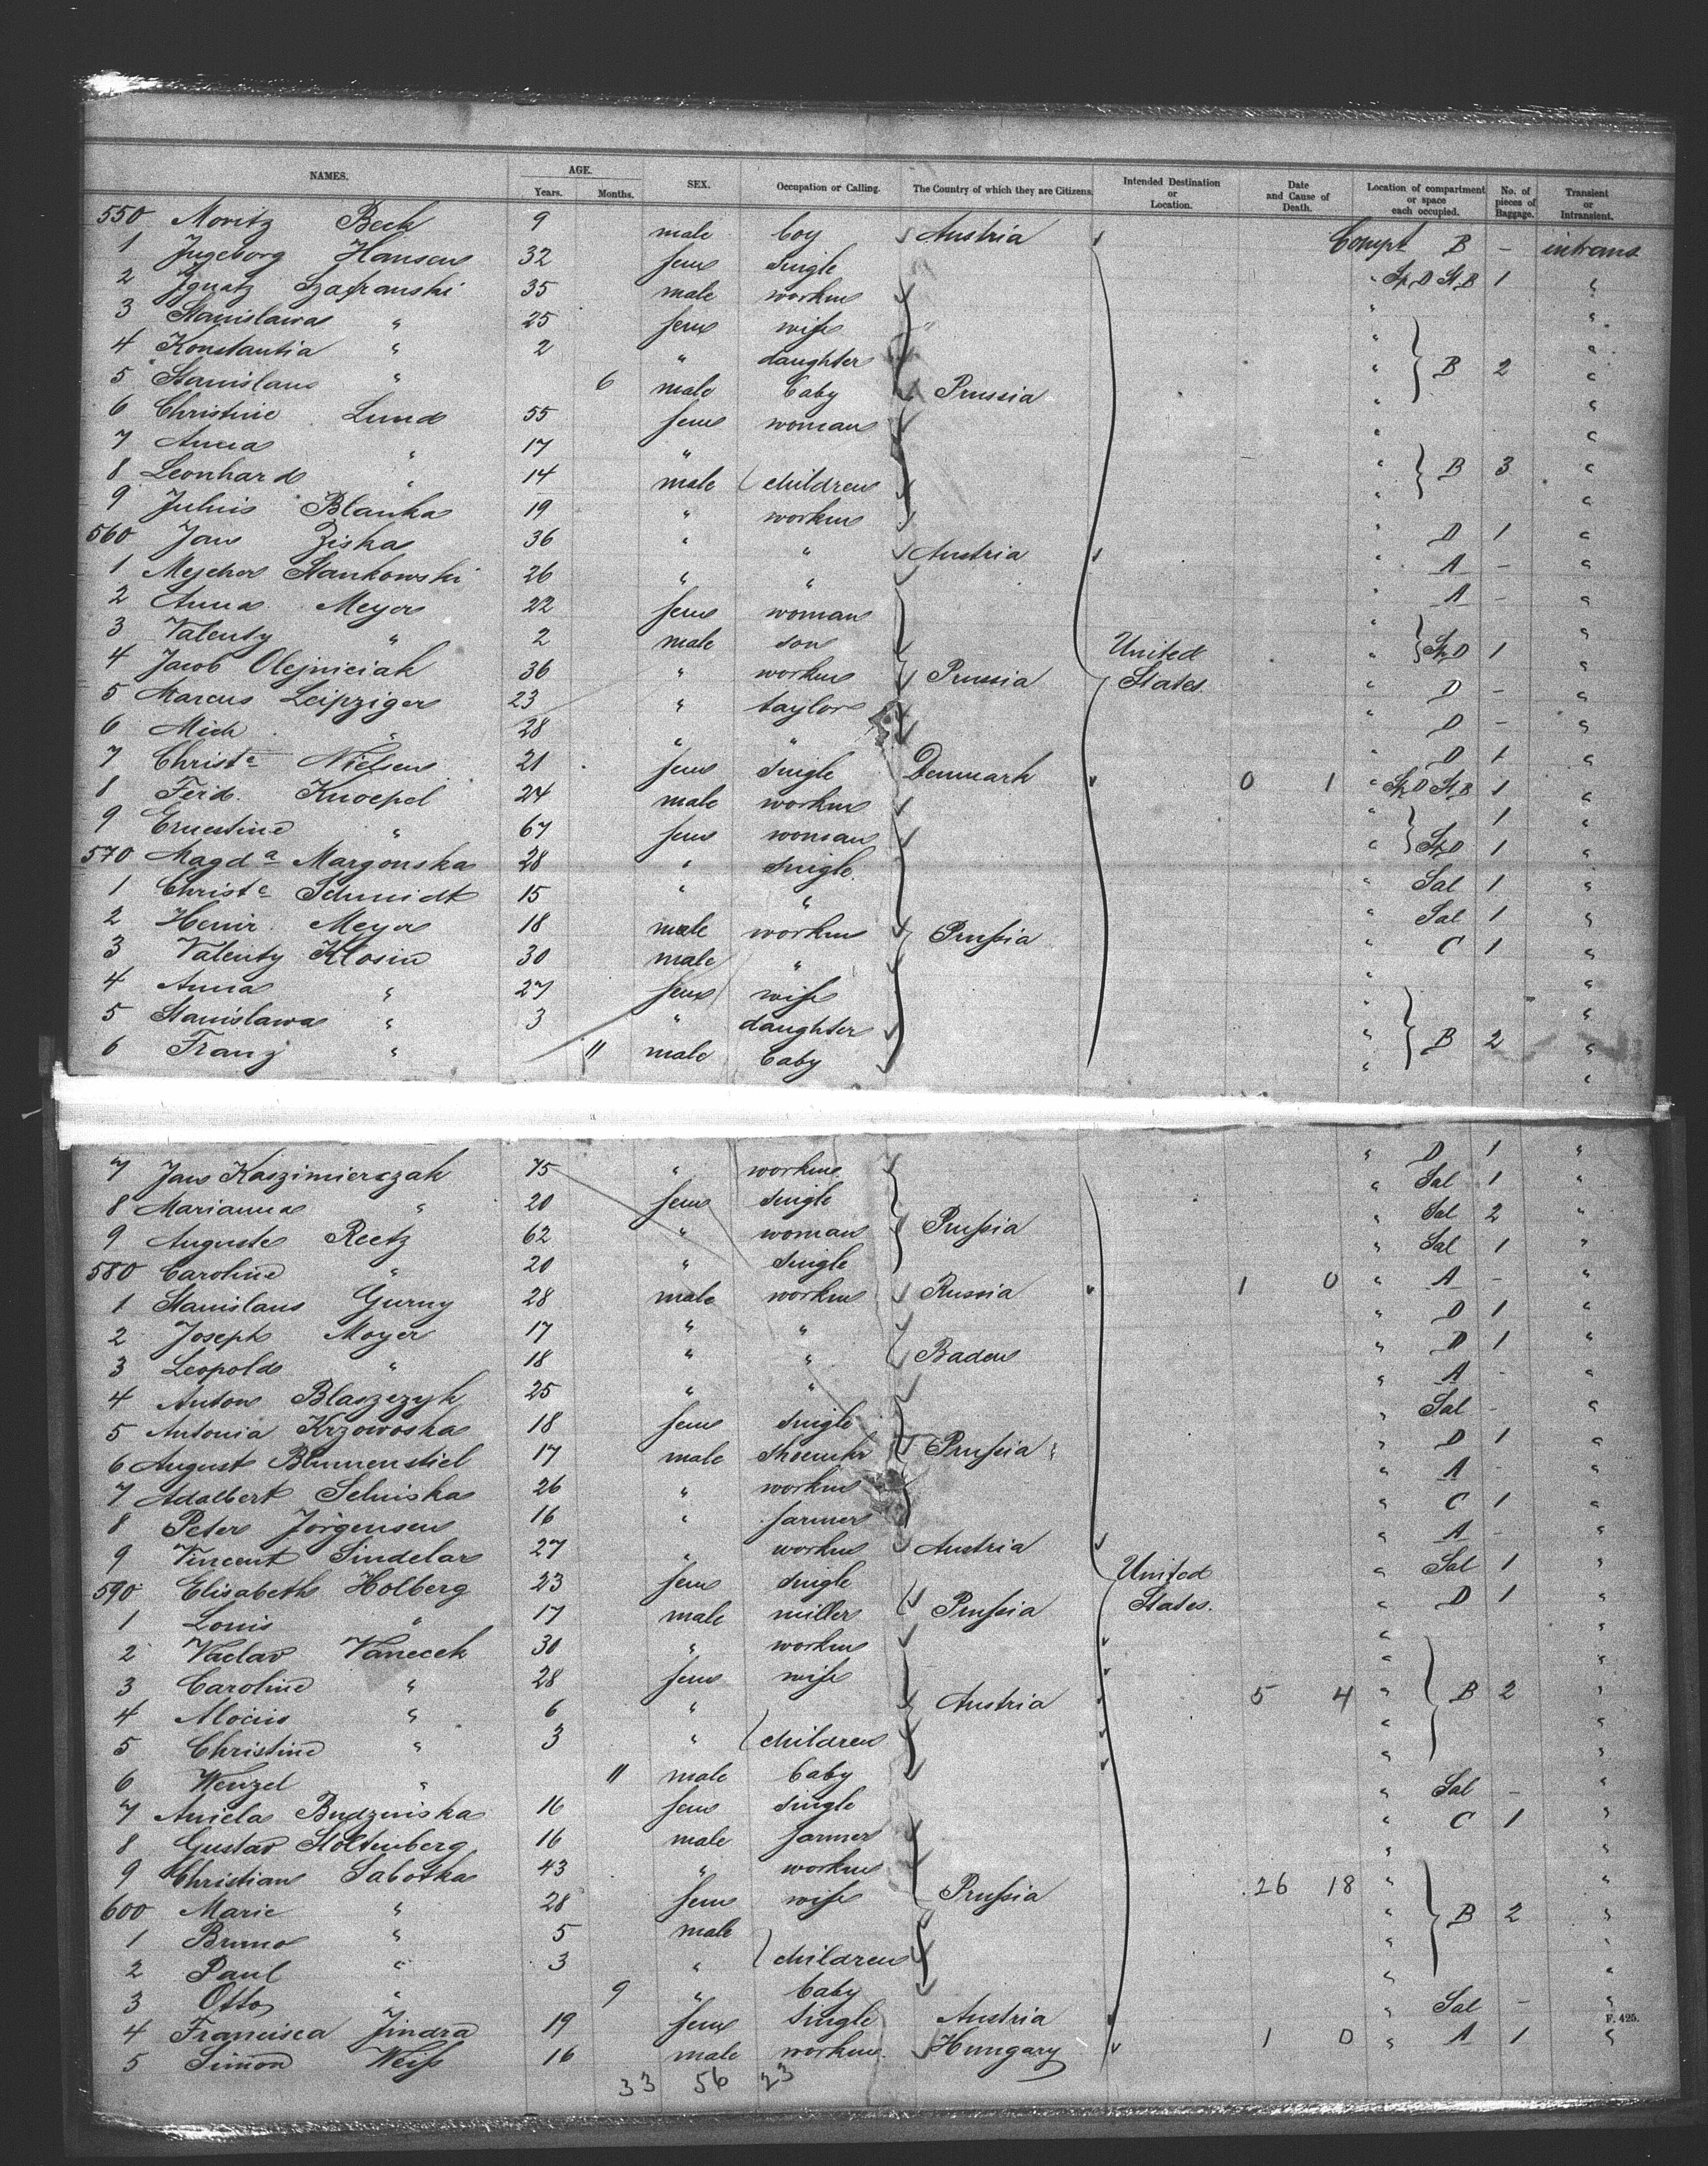 NAMES. AGE. Years. Months. SEX. Occupation or Calling. The Country of which they are Citizens. Intended Destination or Location. Date and Cause of Death. Location of compartment or space each occupied. No. of pieces of Baggage. Transient or Intransient.
550 Moritz Beck 9 male boy Austria Compt B - intrans
1 Ingeborg Hansen 32 fem single " Sp D St B 1 "
2 Ignatz Szafranski 35 male workm " "
3 Stanislawa " 25 fem wife " "
4 Konstantia " 2 " daughter " B 2 "
5 Stanislaus " 6 male baby Prussia " "
6 Christine Lund 55 fem woman " "
7 Anna " 17 " " B 3 "
8 Leonhard " 14 male children " "
9 Julius Blanka 19 " workm " D 1 "
560 Jan Ziska 36 " " Austria " A - "
1 Mejcher Stankowski 26 " " " A - "
2 Anna Meyer 22 fem woman " "
3 Valenty " 2 male son United " Sp D 1 "
4 Jacob Olejniciak 36 " workm Prussia States. " D - "
5 Marcus Leipziger 23 " taylor " D - "
6 Mich " 28 " " " D 1 "
7 Christe Nielsen 21 fem single Denmark 0 1 " Sp D St B 1 "
8 Ferd. Knoepel 24 male workm " 1 "
9 Ernestine " 67 fem woman " Sp D 1 "
570 Magda Margonska 28 " single " Sal 1 "
1 Christe Schmidt 15 " " " Sal 1 "
2 Henir Meyer 18 male workm Prussia " C 1 "
3 Valenty Klosin 30 male " " "
4 Anna " 27 fem wife " "
5 Stanislawa " 3 " daughter " B 2 "
6 Franz " 11 male baby " "
7 Jan Kaszimierczak 75 " workm " D 1 "
8 Marianna " 20 fem single " Sal 1 "
9 Auguste Reetz 62 " woman Prussia " Sal 2 "
580 Caroline " 20 " single " Sal 1 "
1 Stanislaus Gurny 28 male workm Russia 1 0 " A - "
2 Joseph Moyer 17 " " " D 1 "
3 Leopold " 18 " " Baden " D 1 "
4 Anton Blaszczyk 25 " " " A - "
5 Antonia Krzowoska 18 fem single " Sal - "
6 August Blumenstiel 17 male shoemkr Prussia " D 1 "
7 Adalbert Selniska 26 " workm " A - "
8 Peter Jörgensen 16 " farmer " C 1 "
9 Vincent Sindelar 27 " workm Austria " A - "
590 Elisabeth Holberg 23 fem single United " Sal 1 "
1 Louis " 17 male miller Prussia States. " D 1 "
2 Vaclav Vanecek 30 " workm " "
3 Caroline " 28 fem wife " "
4 " 6 " Austria 5 4 " B 2 "
5 Christine " 3 " children " "
6 Wenzel " 11 male baby " "
7 Aniela Budzinska 16 fem single " Sal - "
8 Gustav Stoltenberg 16 male farmer " C 1 "
9 Christian Sabotka 43 " workm " "
600 Marie " 28 fem wife Prussia 26 18 " "
1 Bruno " 5 male " B 2 "
2 Paul " 3 " children " "
3 Otto " 9 " baby " "
4 Francisca Jindra 19 fem single Austria " Sal - "
F. 425.
5 Simon Weiss 16 male workm Hungary 1 0 " A 1 "
33 56 23